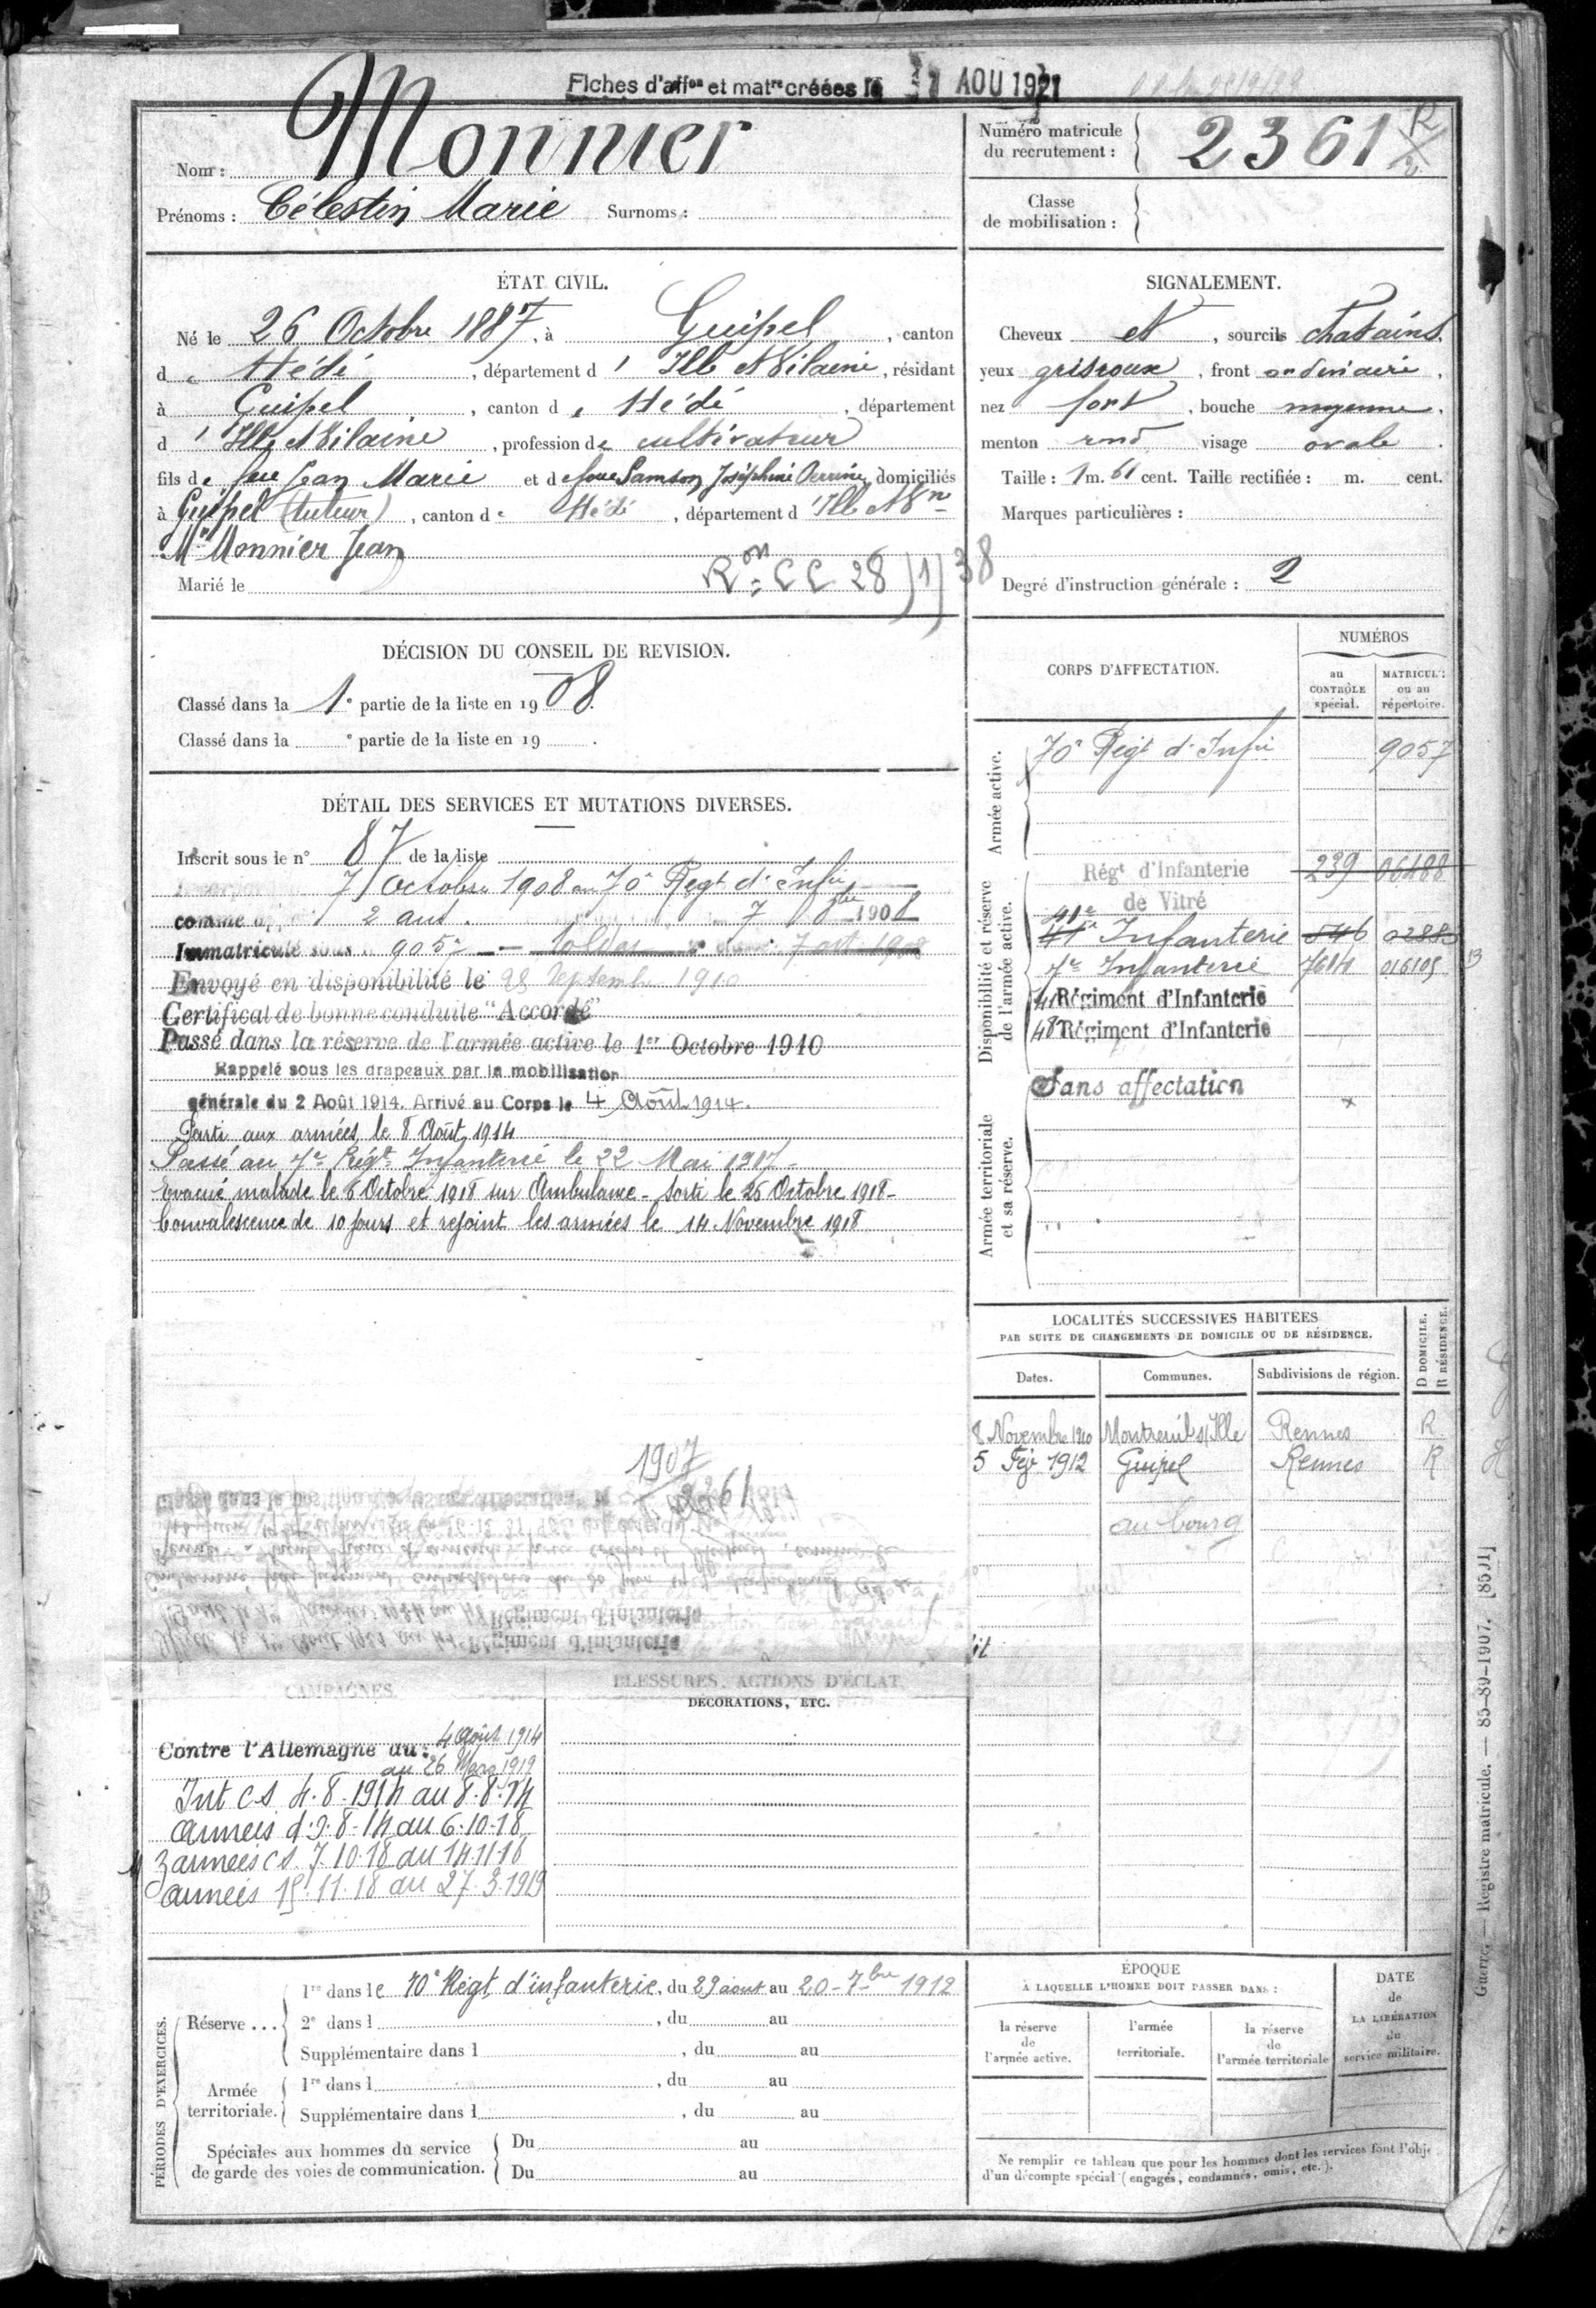 Fiches d'affon et matre créées le AOU 1921
Nom : Monnier
Prénoms : Célestin Marie Surnoms :
Numéro matricule du recrutement : 2361 R/2
Classe de mobilisation :
ÉTAT CIVIL.
Né le 26 Octobre 1887, à Guipel, canton
de Hédé, département d'Ille et Vilaine, résidant
à Guipel, canton de Hédé, département
d'Ille et Vilaine, profession de cultivateur
fils de feu Jean Marie et de feue Samson Joséphine Perrine, domiciliés
à Guipel (tuteur), canton de Hédé, département d'Ille et Vne
Mr Monnier Jean
Marié le
Ron : CC 28/1/38
SIGNALEMENT.
Cheveux et, sourcils chatains.
yeux gris roux, front ordinaire,
nez fort, bouche moyenne,
menton rond visage ovale.
Taille : 1 m. 61 cent. Taille rectifiée : m. cent.
Marques particulières :
Degré d'instruction générale : 2
DÉCISION DU CONSEIL DE REVISION.
Classé dans la 1e partie de la liste en 1908.
Classé dans la e partie de la liste en 19 .
DÉTAIL DES SERVICES ET MUTATIONS DIVERSES.
Inscrit sous le n° 87 de la liste
7 Octobre 1908 au 70e Regt d'Infie
comme 2 ans. 7 8bre 1908
Immatriculé sous 9057 - Soldat 7 oct 1908
Envoyé en disponibilité le 28 Septembre 1910
Certificat de bonne conduite "Accordé"
Passé dans la réserve de l'armée active le 1er Octobre 1910
Rappelé sous les drapeaux par la mobilisation
générale du 2 Août 1914. Arrivé au Corps le 4 Août 1914.
Parti aux armées le 8 Août 1914
Passé au 7e Régt Infanterie le 22 Mai 1917-
Evacué malade le 6 Octobre 1918 sur Ambulance - Sorti le 26 Octobre 1918-
Convalescence de 10 jours et rejoint les armées le 14 Novembre 1918
1907
2361
Régiment d'Infanterie
Régiment d'Infanterie
CORPS D'AFFECTATION.
NUMÉROS
au CONTRÔLE spécial.
MATRICULE ou au répertoire.
Armée active.
70e Regt d'Infie 9057
Disponibilité et réserve de l'armée active.
Régt d'Infanterie 239 06488
de Vitré
41e
Infanterie 546 0288
7e Infanterie 7614 016105
41 Régiment d'Infanterie
48 Régiment d'Infanterie
Armée territoriale et sa réserve.
Sans affectation
LOCALITÉS SUCCESSIVES HABITÉES
PAR SUITE DE CHANGEMENTS DE DOMICILE OU DE RÉSIDENCE.
Dates. Communes. Subdivisions de région. D DOMICILE. R RÉSIDENCE.
8 Novembre 1910 Montreuil s/ Ille Rennes R
5 Fév 1912 Guipel Rennes R
au bourg
CAMPAGNES.
Contre l'Allemagne du : 4 Août 1914
au 26 Mars 1919
Int CS 4.8.1914 au 8.8.14
armées d. 9.8-14 au 6.10-18
armées CS 7.10.18 au 14.11.18
armées 15.11.18 au 27.3.1919
BLESSURES, ACTIONS D'ÉCLAT
DÉCORATIONS, ETC.
PÉRIODES D'EXERCICES.
Réserve ...
1re dans le 70e Régt d'infanterie, du 29 aout au 20-7bre 1912
2e dans l , du au
Supplémentaire dans l , du au
Armée territoriale.
1re dans l , du au
Supplémentaire dans l , du au
Spéciales aux hommes du service de garde des voies de communication.
Du au
Du au
ÉPOQUE
À LAQUELLE L'HOMME DOIT PASSER DANS :
la réserve de l'armée active.
l'armée territoriale.
la réserve de l'armée territoriale
DATE de LA LIBÉRATION du service militaire.
Ne remplir ce tableau que pour les hommes dont les services font l'obje
d'un décompte spécial (engagés, condamnés, omis, etc.).
Guerre. — Registre matricule. — 85-89-1907. [8501]